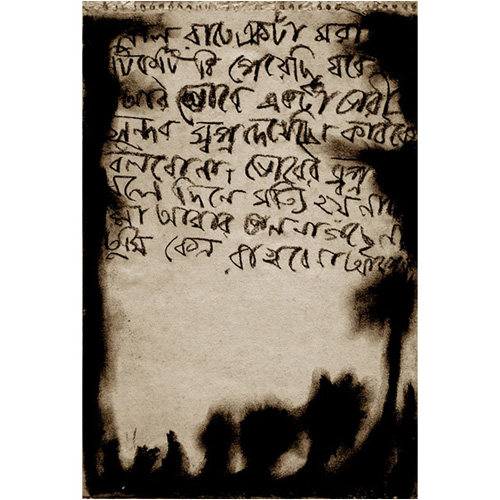 কাল রাতে একটা মরা
টিকটিকি পেয়েছি ঘরে
আর ভোরে একটা ভারী
সুন্দর স্বপ্ন দেখেছি কারকে
বলবোনা, ভোরের স্বপ্ন
বলে দিলে সত্যি হয় না
মা আমার
তুমি কেন রাখবে না